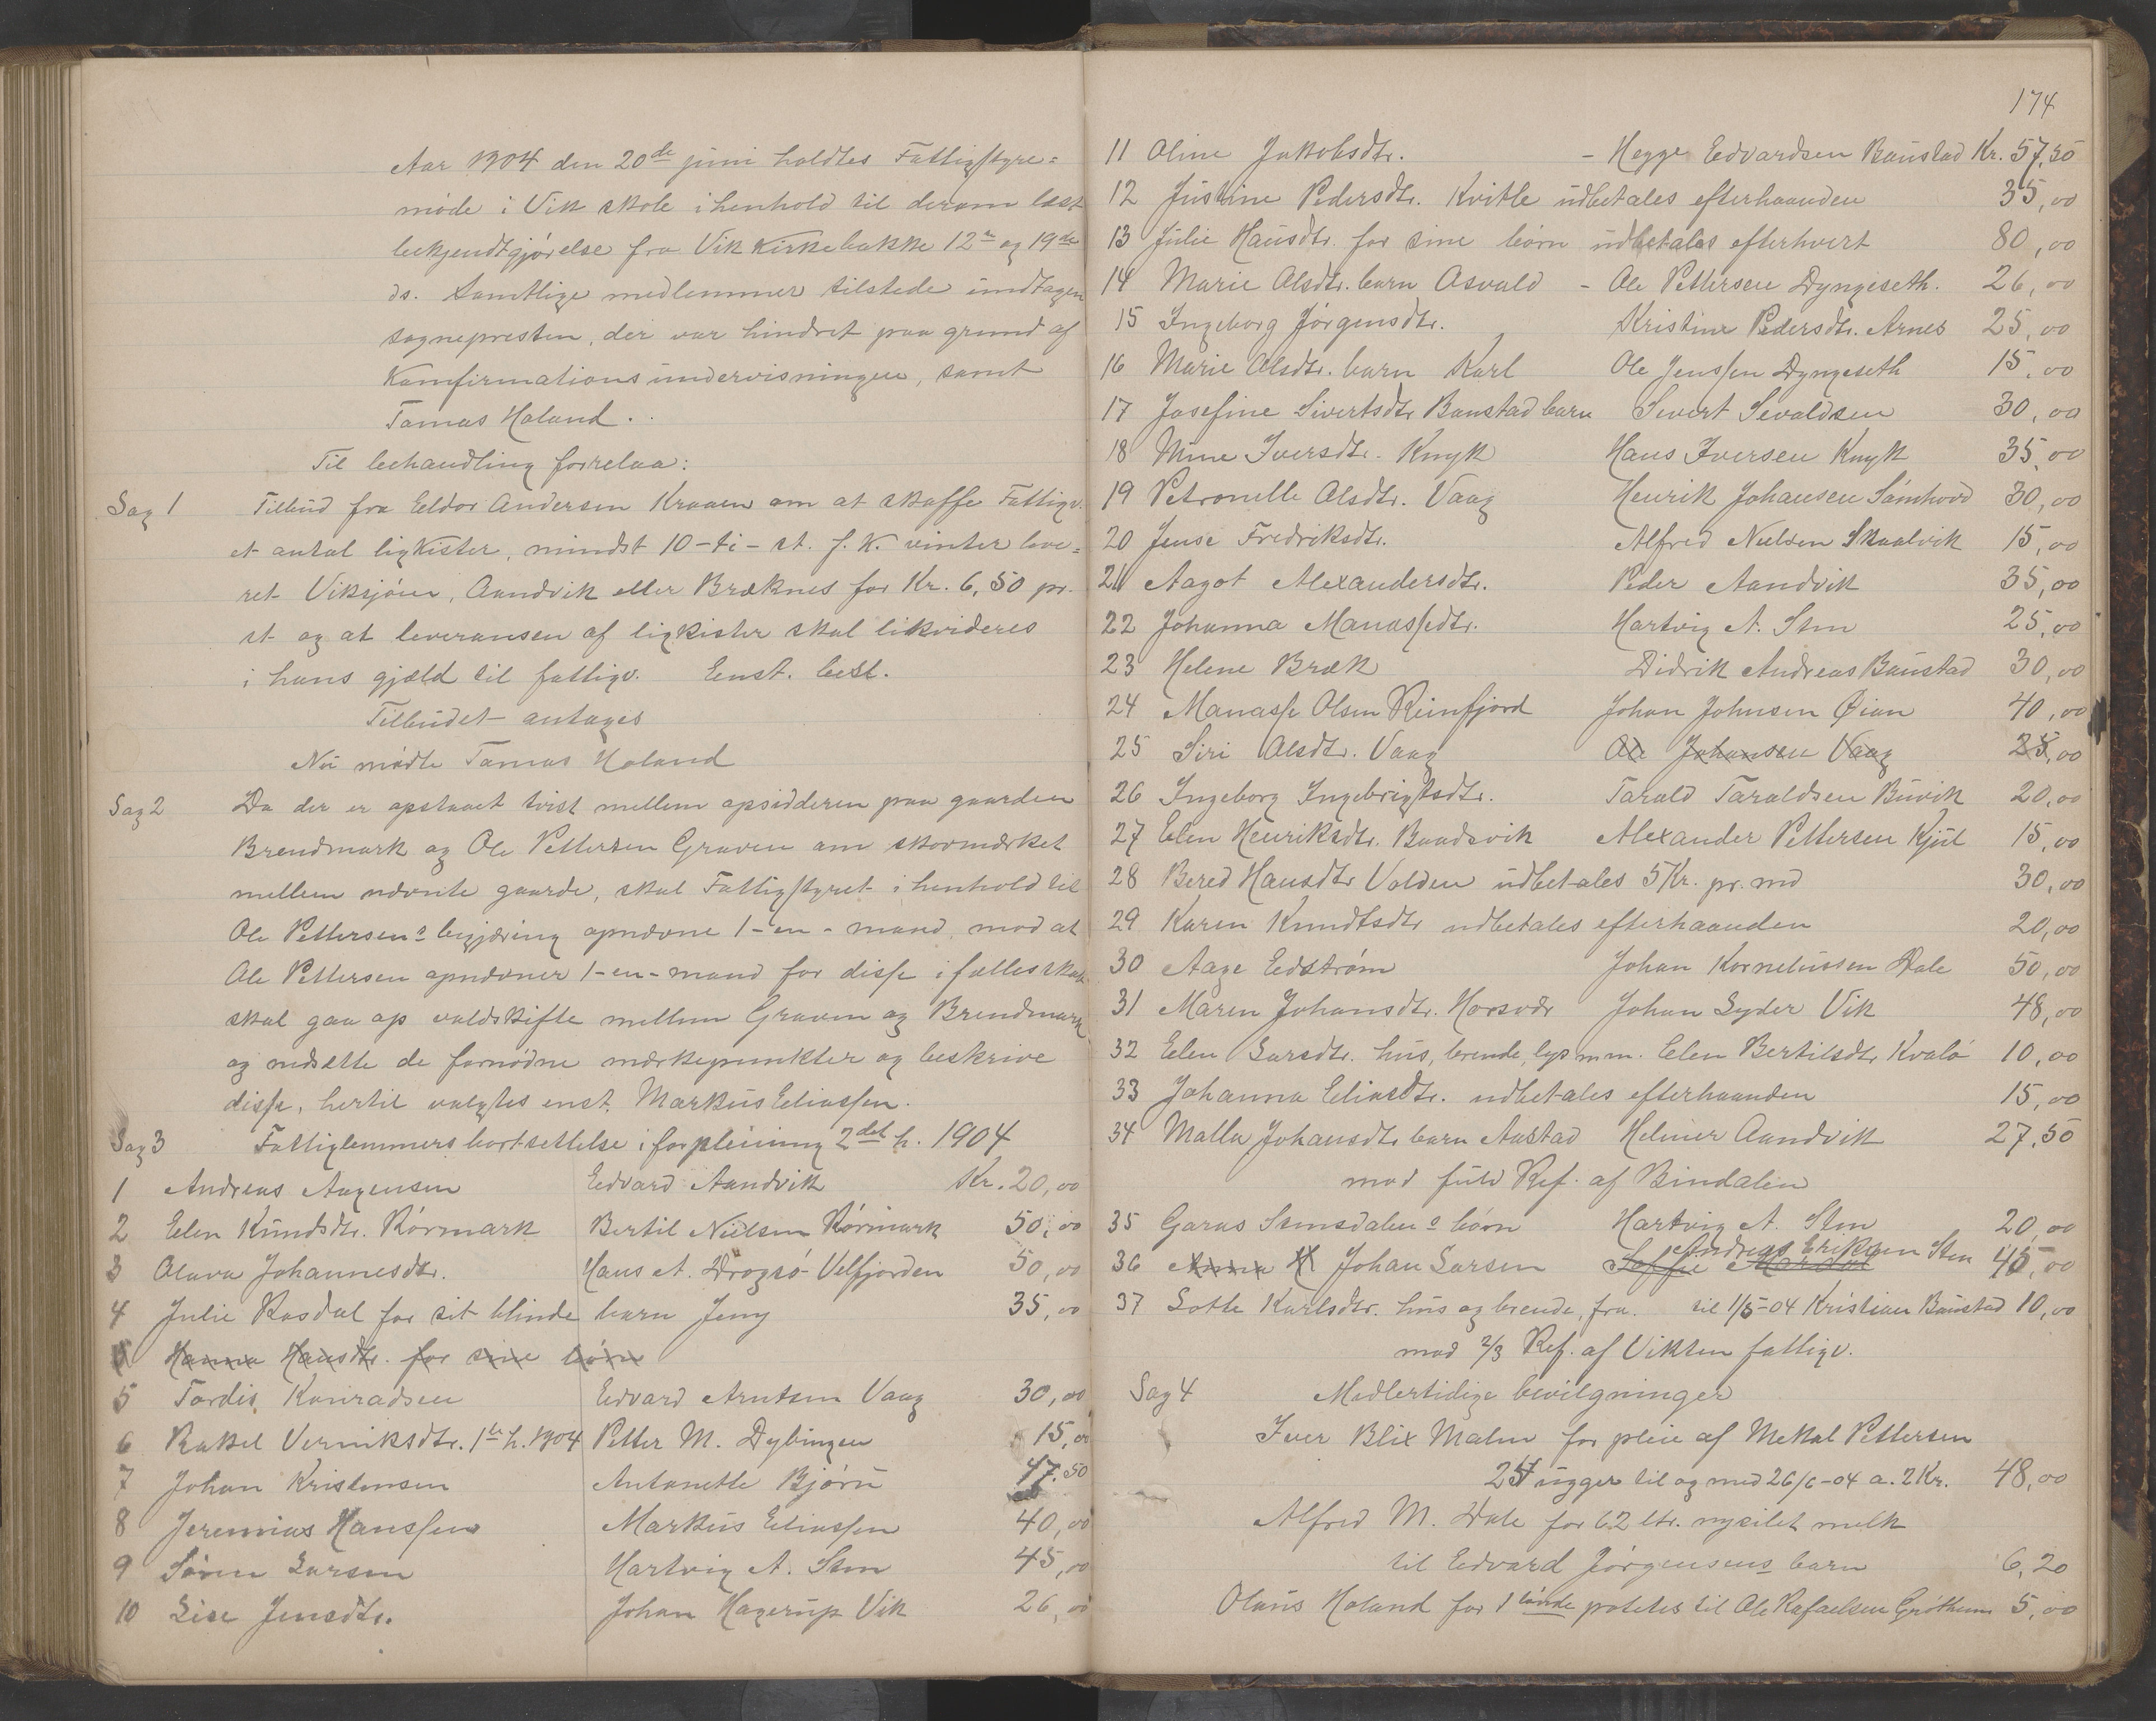 Aar 1904 den 20de juni holdtes Fattigstyre=
møde i Vik skole i henhold til derom læst
bekjendtgjørelse fra Vik Kirkebakke 12te og 19de
ds. Samtlige medlemmer tilstede undtagen
sognepresten, der var hindret paa grund af
Komfirmationsundervisningen, samt
Tomas Holand.
Til behandling forrelaa:
Sag 1 Tilbud fra Eldor Andersen Kraaen om at skaffe Fattigv.
et antal ligkister, mindst 10-ti-st. f. K. vinter leve=
ret Viksjøen, Aandvik eller Bræknes for Kr. 6,50 pr.
st og at leveransen af ligkister skal likvideres
i hans gjæld til fattigv. Enst. besl.
Tilbudet antages
Nu mødte Tomas Holand
Sag 2 Da der er opstaaet tvist mellem opsidderen paa gaarden
Brendmark og Ole Pettersen Graven om skovmærket
mellem nævnte gaarde, skal Fattigstyret i henhold til
Ole Pettersens begjæring opnævne 1-en-mand, mod at
Ole Pettersen opnævner 1-en-mand for disse i fællesskab
skal gaa op valdskifte mellem Graven og Brendmark
og nedsætte de fornødne mærkepunkter og beskrive
disse, hertil valgtes enst. Markus Eliassen.
Sag 3 Fattiglemmers bortsettelse i forpleining 2det h. 1904
1 Andreas Aagensen Edvard Aandvik Kr. 20,00
2 Elen Knudsdtr. Rørmark Bertil Nielsen Rørmark 50,00
3 Olava Johannesdtr. Hans A. Drogsø Velfjorden 50,00
4 Julie Rosdal for sit blinde barn Jeny 35,00
5 Hanna Hansdtr. for sine børn
5 Tordis Konradsen Edvard Arntsen Vaag 30,00
6 Rakel Verniksdtr. 1ste h. 1904 Petter M. Dybingen 15,00
7 Johan Kristensen Antonette Bjørn 47.50
8 Jeremias Hanssen Markus Eliassen 40,00
9 Søren Larsen Hartvig A. Sten 45,00
10 Lise Jensdtr. Johan Hagerup Vik 26,00
174
11 Oline Jakobsdtr. - Hegge Edvardsen Baustad Kr. 57,50
12 Justine Pedersdtr. Kvitle udbetales efterhaanden 35,00
13 Julie Hausdtr. for sine børn udbetales efterhvert 80,00
14 Marie Olsdtr. barn Osvald - Ole Pettersen Dyngeseth. 26,00
15 Ingeborg Jørgensdtr. Kristine Pedersdtr. Arnes 25,00
16 Marie Olsdtr. barn Karl Ole Jenssen Dyngeseth 15,00
17 Josefine Sivertsdtr. Baustad barn Sivert Sevaldsen 30,00
18 Mine Iversdtr. Knyk Hans Iversen Knyk 35,00
19 Petronelle Olsdtr. Vaag Henrik Johansen Sømhovd 30,00
20 Jense Fredriksdtr. Alfred Nielsen Skaalvik 15,00
21 Aagot Alexandersdtr. Peder Aandvik 35,00
22 Johanna Manassedtr. Hartvig A. Sten 25,00
23 Helene Bræk Didrik Andreas Baustad 30,00
24 Manasse Olsen Reinfjord Johan Johnsen Øian 40,00
25 Siri Olsdtr. Vaag Ole Johansen Vaag 25,00
26 Ingeborg Ingebrigtsdtr. Tarald Taraldsen Buvik 20,00
27 Elen Henriksdtr. Baadsvik Alexander Pettersen Kjul 15,00
28 Bered Hansdtr Volden udbetales 5 Kr. pr. md 30,00
29 Karen Knudtsdtr udbetales efterhaanden 20,00
30 Aage Edstrøm Johan Korneliussen Dale 50,00
31 Maren Johansdtr. Horsvær Johan Lyder Vik 48,00
32 Elen Larsdtr. hus, brende, lys m.m. Elen Bertilsdtr. Kvalø 10,00
33 Johanna Eliasdtr. udbetales efterhaanden 15,00
34 Malla Johansdtr. barn Aastad Helmer Aandvik 27,50
mod fuld Ref. af Bindalen
35 Garas Stensdalens børn Hartvig A. Sten 20,00
Andreas Eriksen Sten
36 Johan Larsen 45,00
37 Lotte Karlsdtr. hus og brende, fra. til 1/5-04 Kristian Baustad 10,00
mod 2/3 Ref. af Vikten fattigv.
Sag 4 Midlertidige bevilgninger
Iver Blix Malm for pleie af Mekal Pettersen
24 ugger til og med 26/6-04 a. 2 Kr. 48,00
Alfred M. Dale for 62 ltr. nysilet melk
til Edvard Jørgensens barn 6,20
Olaus Holand for 1 tønde potetes til Ole Rafaelsen Grøtheim 5,00